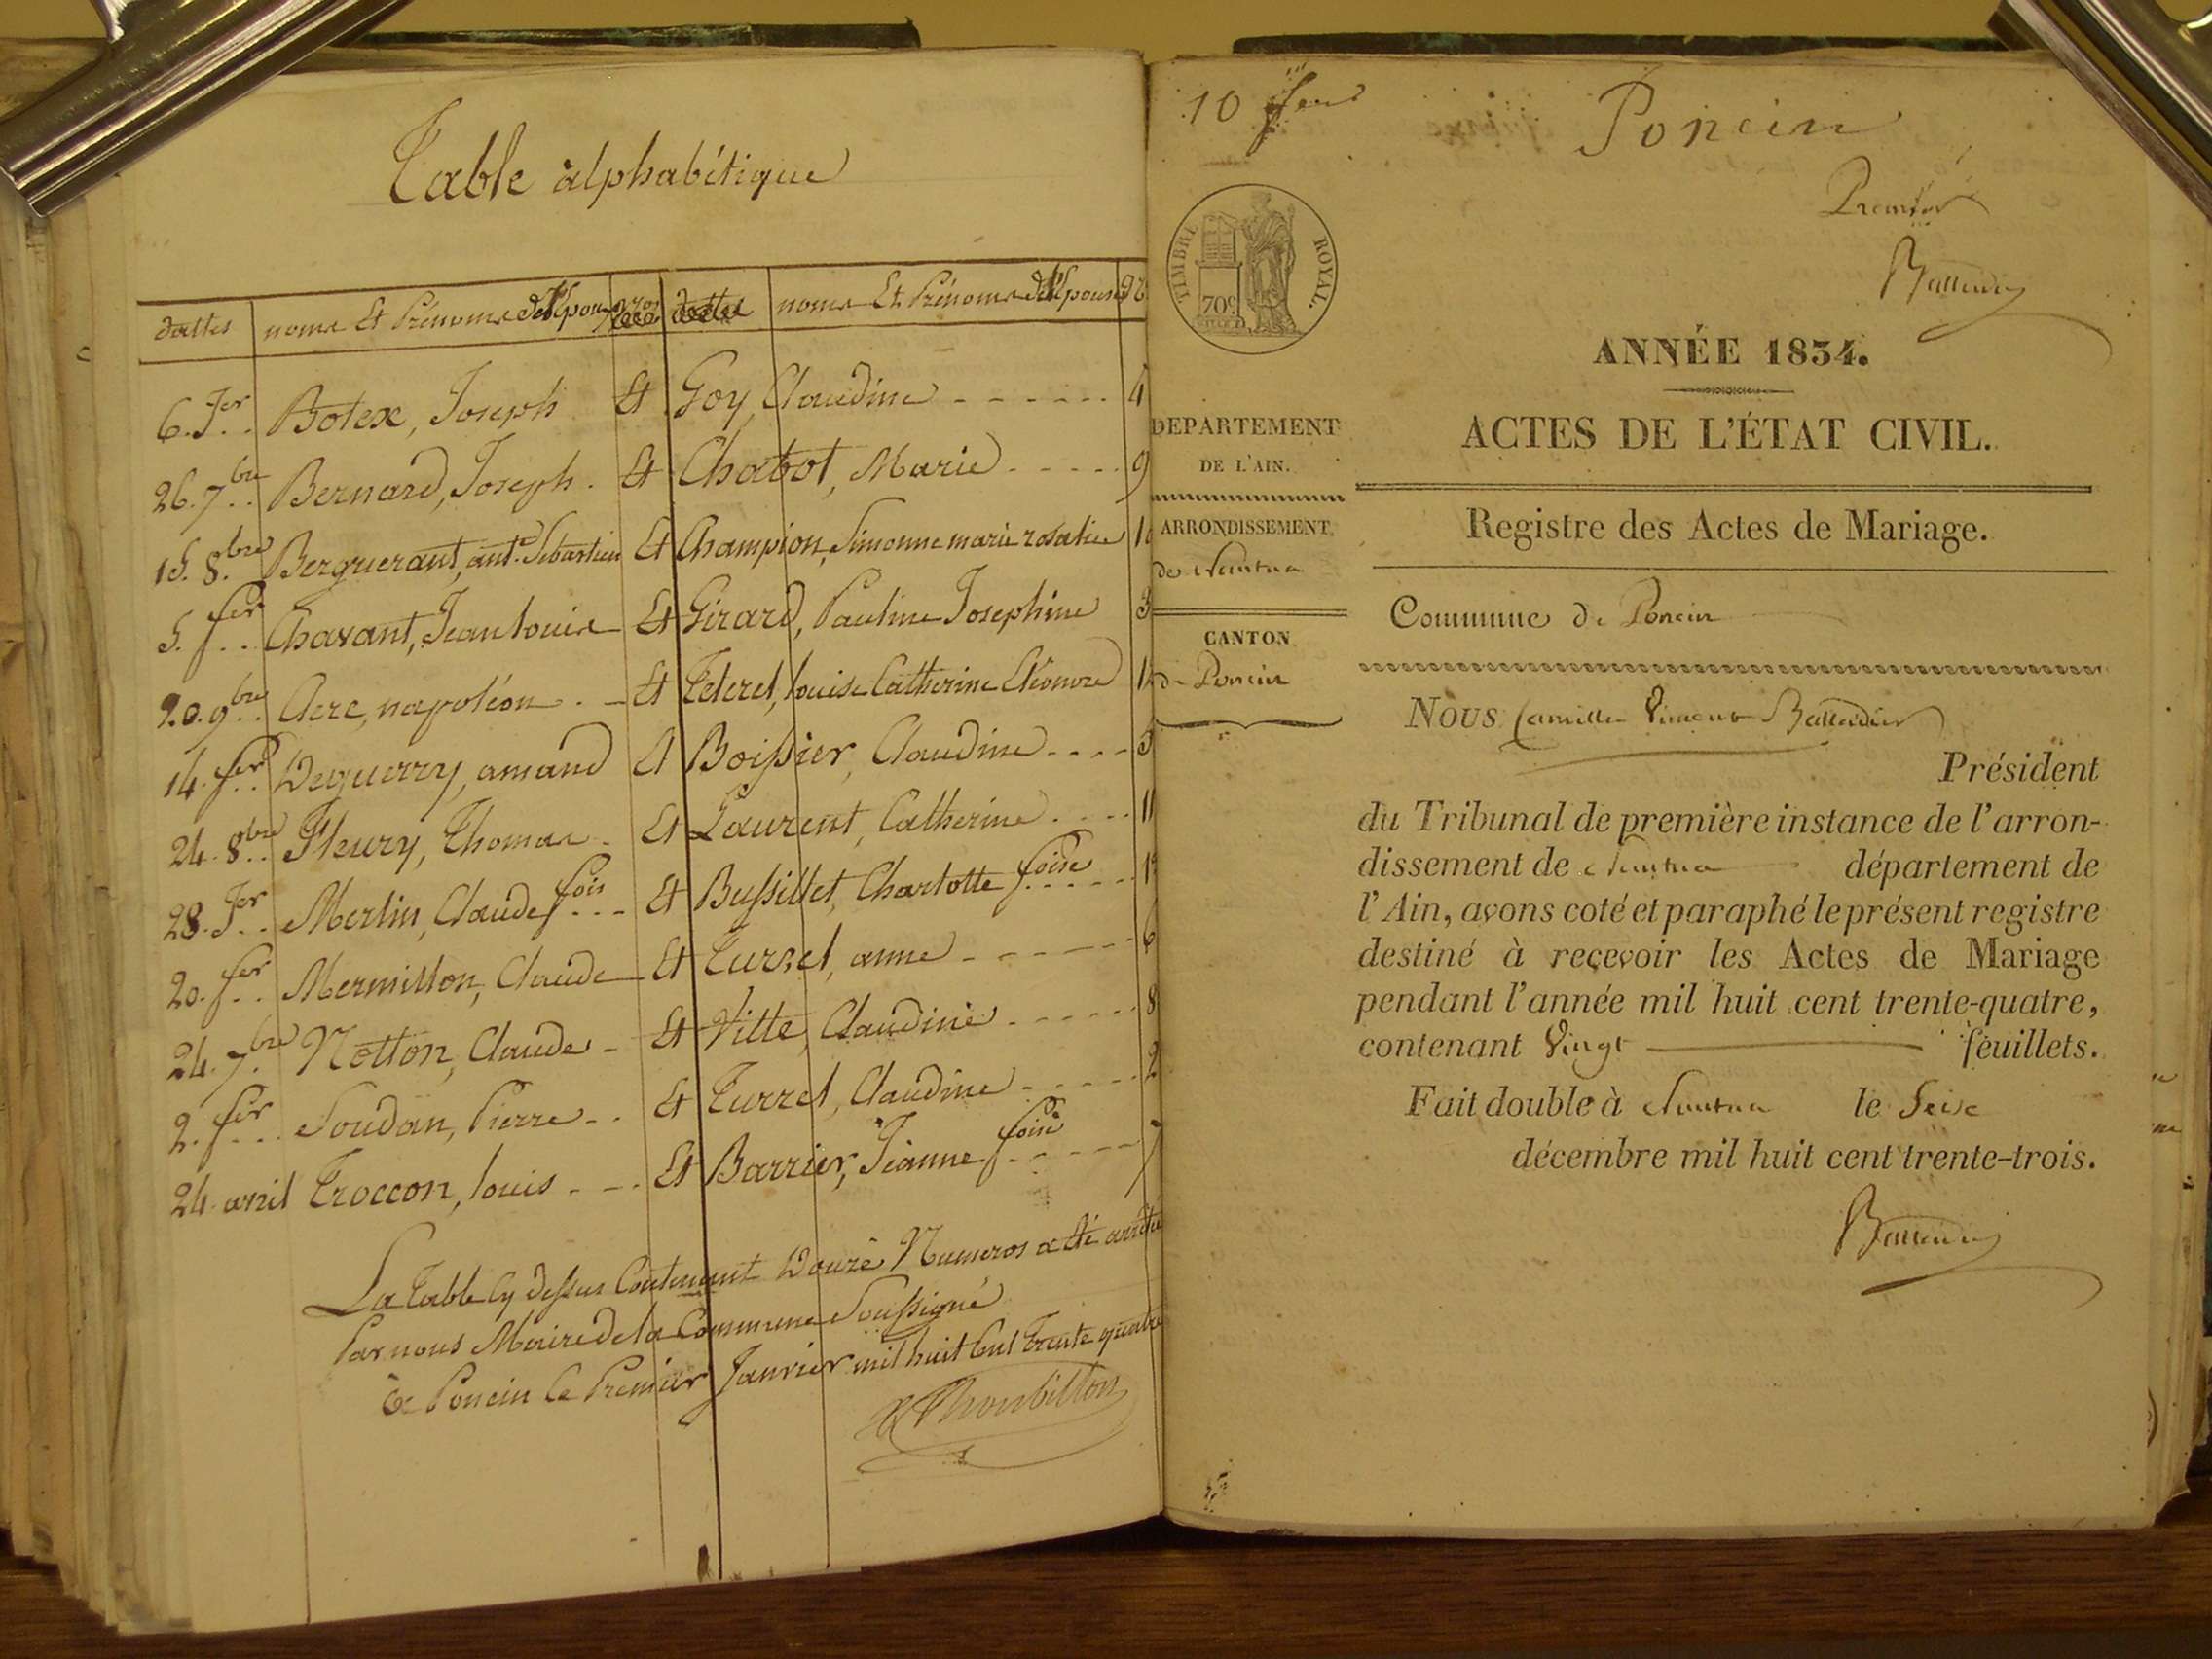 Table alphabétique
dattes noms Et Prénoms des Epoux Nos noms Et Prénoms des Epouses
6. Jer Botex, Joseph Et Goy, Claudine 4
26. 7bre Bernard, Joseph Et Chabot, Marie 9
15. 8bre Berguerant, ant.e Sébastien Et Champion, Simonne marie rosalie 10
5. fer Chavant, Jean louis Et Girard, Pauline Josephine 3
20. 9bre Clerc, napoléon Et Teteret, louise Catherine Eléonore 12
14. fer Deguerry, amand Et Boissier, Claudine 5
24. 8bre Fleury, Thomas Et Laurent, Catherine 11
28. Jer Merlin, Claude fois Et Bussillet, Charlotte foise 1
20. fer Mermillon, Claude Et Turrel, anne 6
24. 7bre Notton, Claude Et Vitte, Claudine 8
2. fer Soudan, Pierre Et Turrel, Claudine 2
24 avril Troccon, louis Et Barrier, Jeanne foise 7
La Table Cy dessus Contenant Douze Numeros a été arrêté
Par nous Maire de la Commune Soussigné
à Poncin le Premier Janvier mil huit Cent Trente quatre
10 feuil
Poncin
Premier
Ballandin
TIMBRE ROYAL.
70c.
ANNÉE 1834.
ACTES DE L'ÉTAT CIVIL.
Registre des Actes de Mariage.
DEPARTEMENT
DE L'AIN.
ARRONDISSEMENT
de Nantua
CANTON
de Poncin
Commune de Poncin
Nous Camille Vincent
Président
du Tribunal de première instance de l'arron-
dissement de Nantua département de
l'Ain, avons coté et paraphé le présent registre
destiné à recevoir les Actes de Mariage
pendant l'année mil huit cent trente-quatre,
contenant Vingt feuillets.
Fait double à Nantua le Seize
décembre mil huit cent trente-trois.